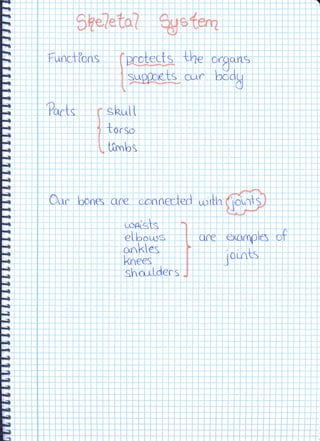 Skeletal System
Functions protects the organs
supports our body
Parts skull
torso
limbs
Our bones are connected with joints
wrists
elbows are examples of
ankles joints
knees
shoulders